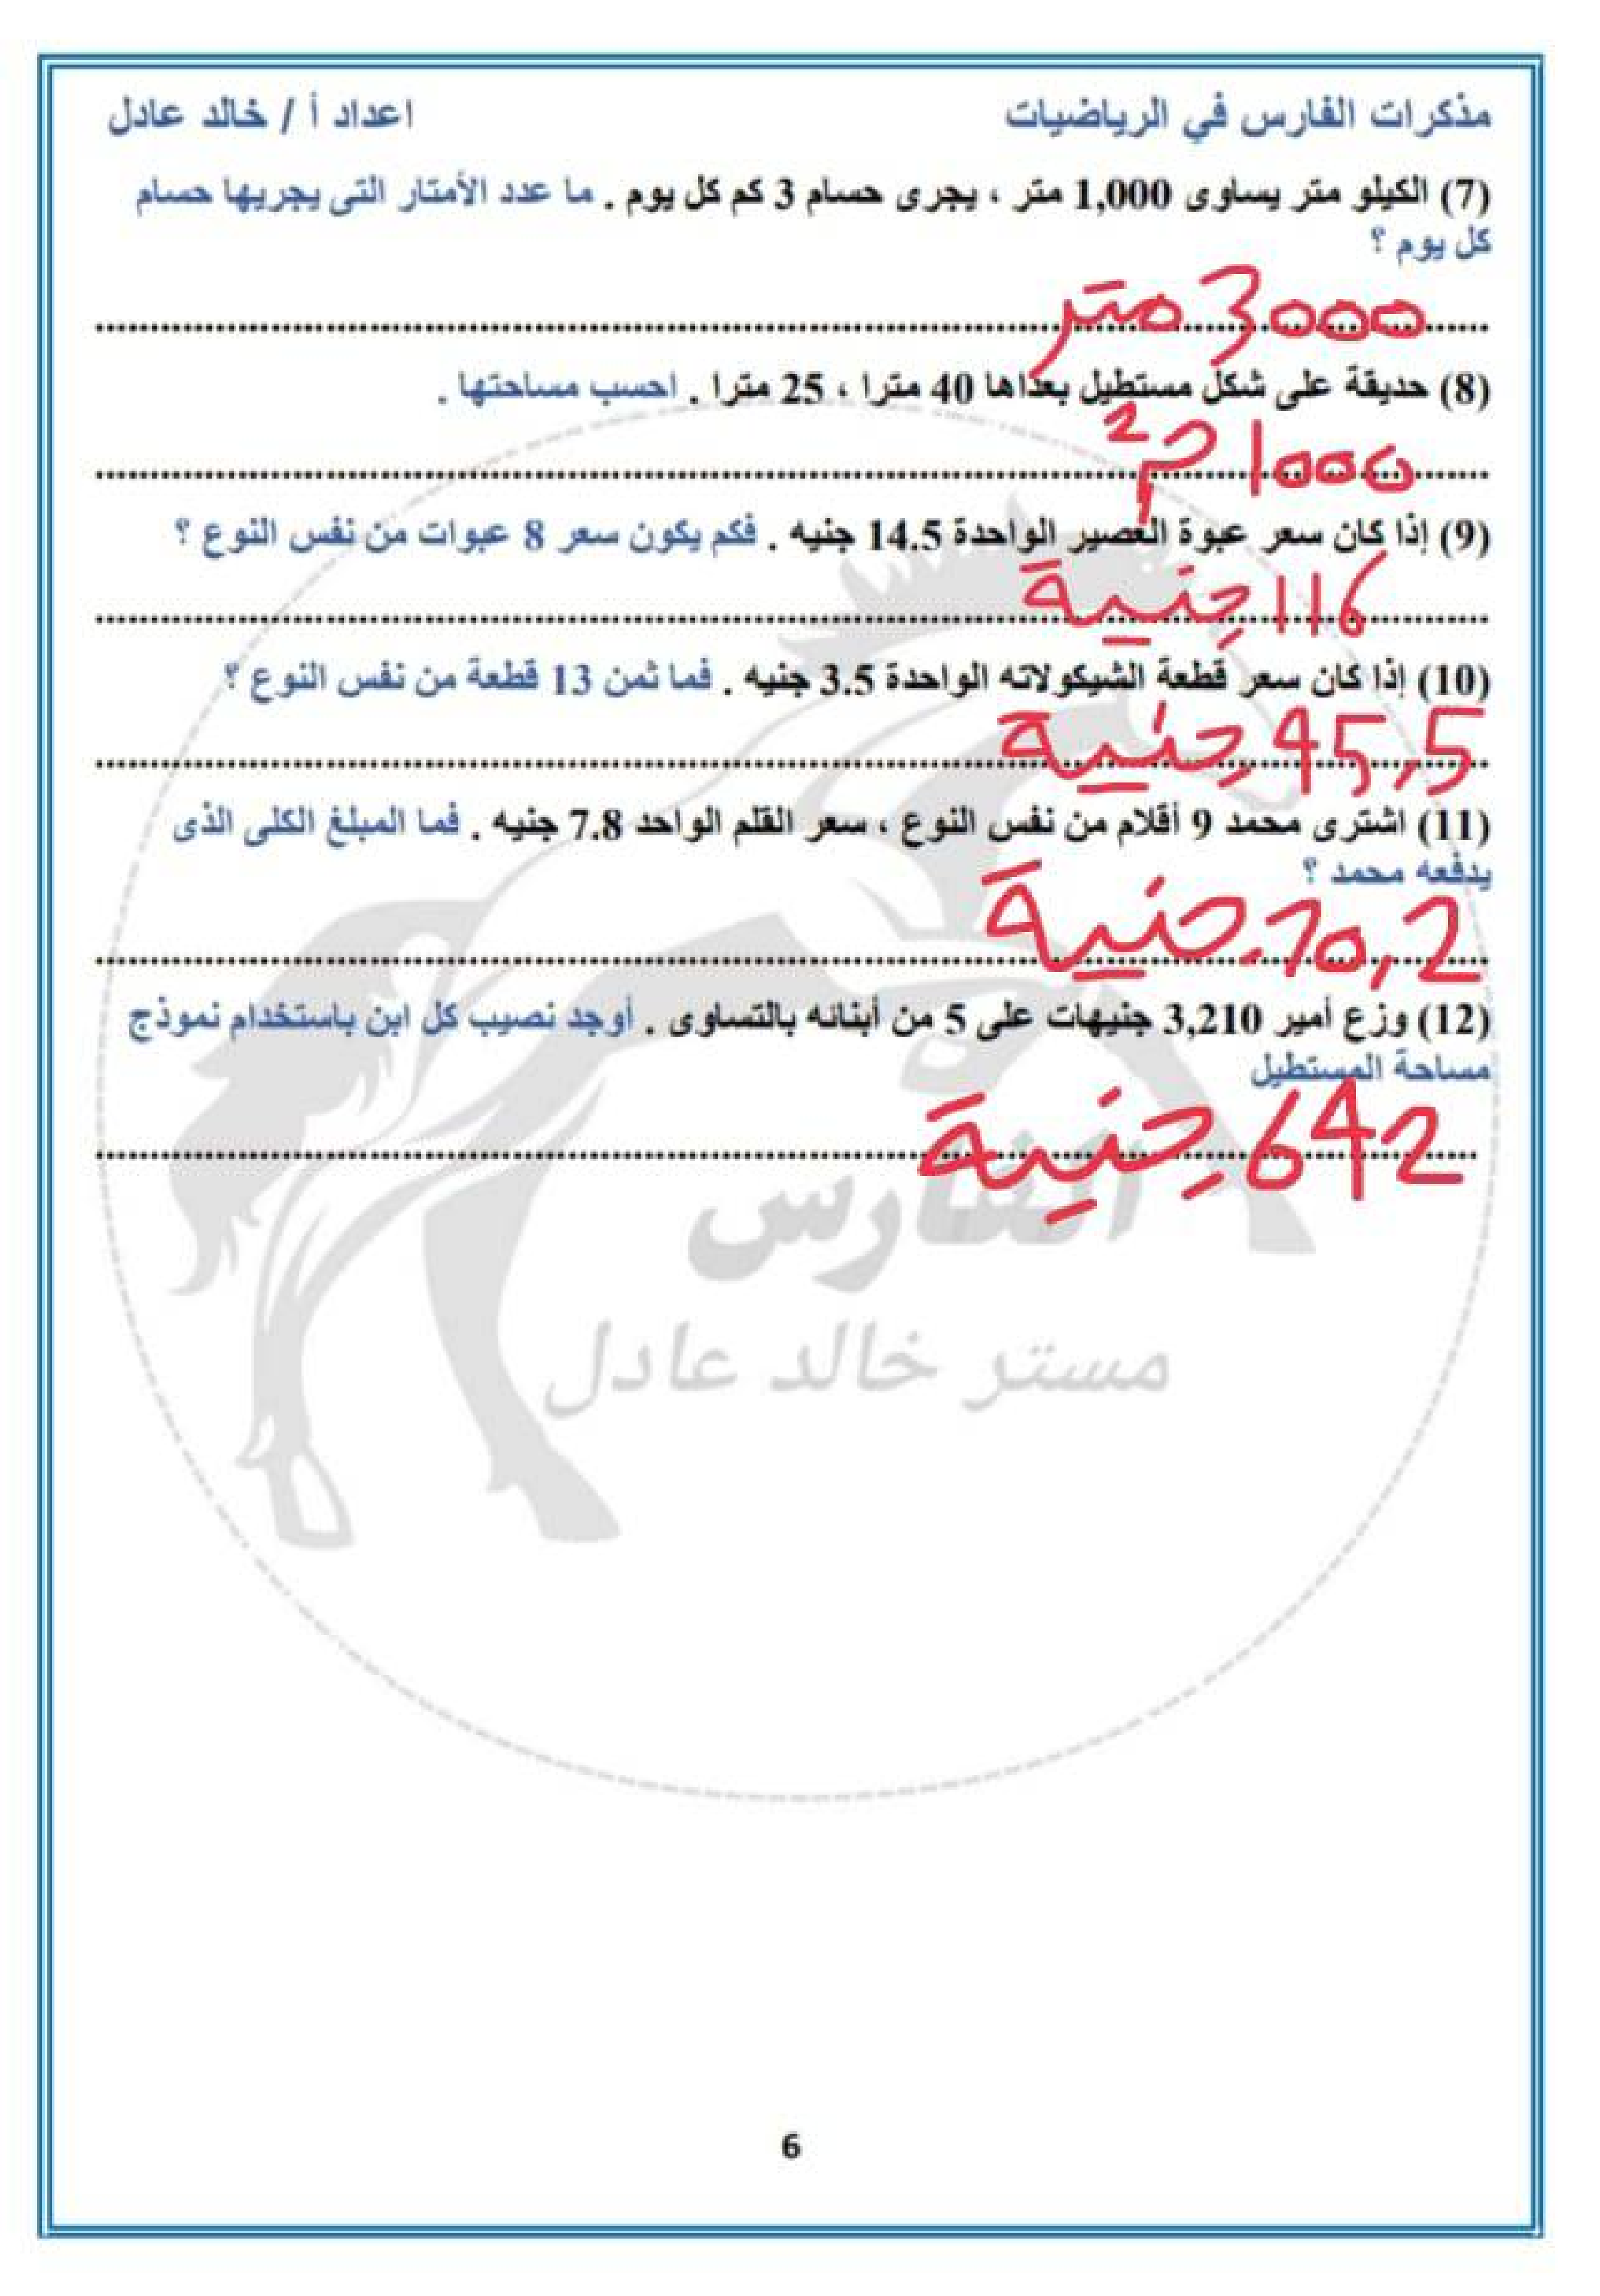 مذكرات الفارس في الرياضيات
اعداد أ / خالد عادل
(7) الكيلو متر يساوى 1,000 متر ، يجرى حسام 3 كم كل يوم . ما عدد الأمتار التى يجريها حسام
كل يوم ؟
3000 متر
(8) حديقة على شكل مستطيل بعداها 40 مترا ، 25 مترا . احسب مساحتها .
1000 م²
(9) إذا كان سعر عبوة العصير الواحدة 14.5 جنيه . فكم يكون سعر 8 عبوات من نفس النوع ؟
116 جنية
(10) إذا كان سعر قطعة الشيكولاته الواحدة 3.5 جنيه . فما ثمن 13 قطعة من نفس النوع ؟
45,5 جنية
(11) اشترى محمد 9 أقلام من نفس النوع ، سعر القلم الواحد 7.8 جنيه . فما المبلغ الكلى الذى
يدفعه محمد ؟
70,2 جنية
(12) وزع أمير 3,210 جنيهات على 5 من أبنائه بالتساوى . أوجد نصيب كل ابن باستخدام نموذج
مساحة المستطيل
642 جنية
الفارس
مستر خالد عادل
6